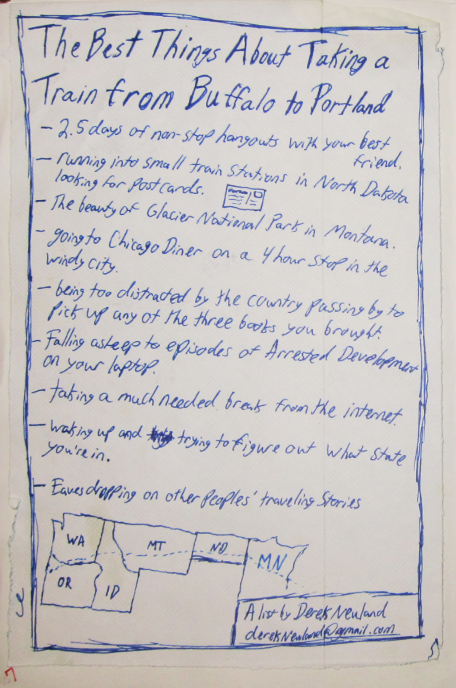 The Best Things About Taking a
Train from Buffalo to Portland
- 2.5 days of non-stop hangouts with your best
friend.
- running into small train stations in North Dakota
looking for postcards.
- The beauty of Glacier National Park in Montana.
- going to Chicago Diner on a 4 hour stop in the
windy city.
- being too distracted by the country passing by to
pick up any of the three books you brought.
- Falling asleep to episodes of Arrested Development
on your laptop.
- taking a much needed break from the internet.
- waking up and trying to figure out what state
you're in.
- Eavesdropping on other peoples' traveling stories
WA
MT
ND
MN
OR
ID
A list by Derek Neuland
derekneuland@gmail.com